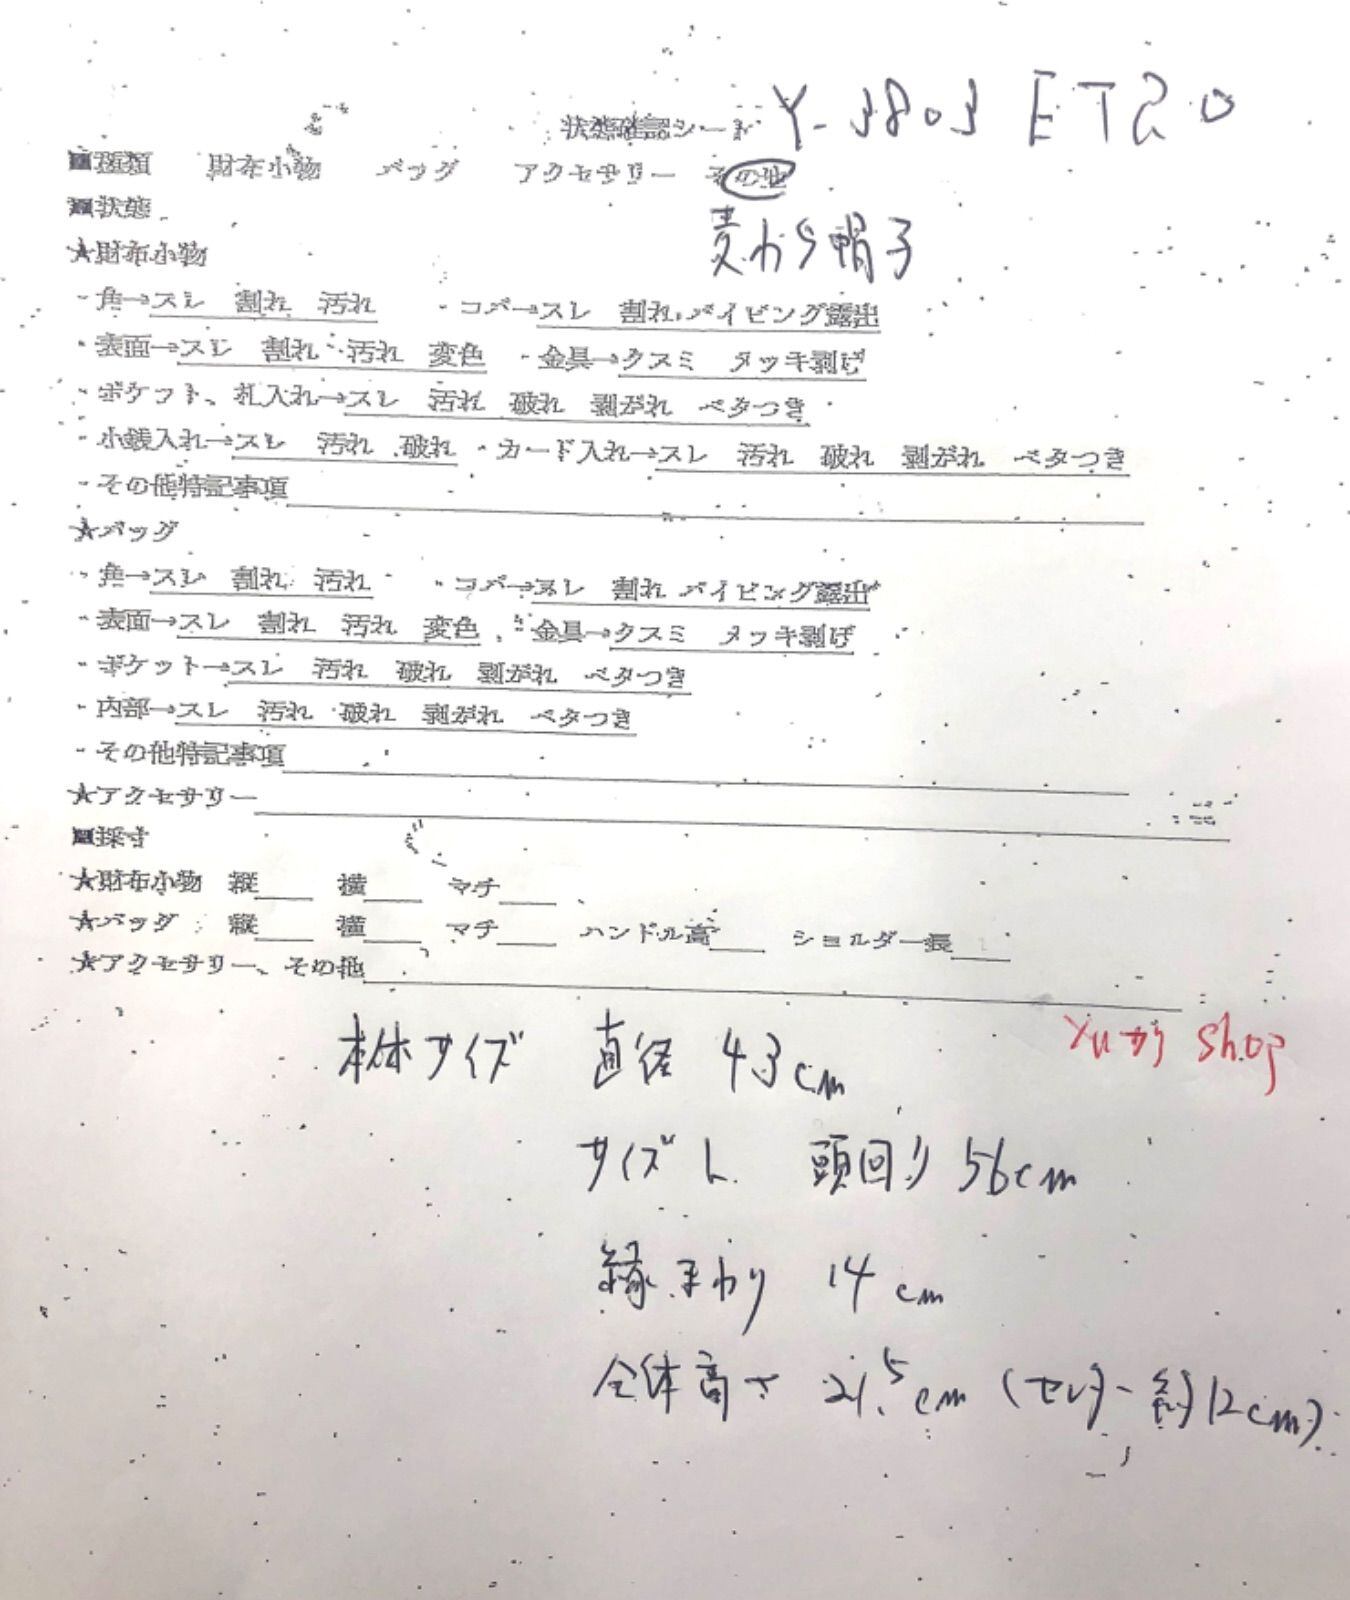 状態確認シート Y-3803 ETRO
■種類 財布小物 バッグ アクセサリー その他
■状態 麦わら帽子
★財布小物
・角→スレ 割れ 汚れ ・コバ→スレ 割れ パイピング露出
・表面→スレ 割れ 汚れ 変色 ・金具→クスミ メッキ剥げ
・ポケット、札入れ→スレ 汚れ 破れ 剥がれ ベタつき
・小銭入れ→スレ 汚れ 破れ ・カード入れ→スレ 汚れ 破れ 剥がれ ベタつき
・その他特記事項
★バッグ
・角→スレ 割れ 汚れ ・コバ→スレ 割れ パイピング露出
・表面→スレ 割れ 汚れ 変色 ・金具→クスミ メッキ剥げ
・ポケット→スレ 汚れ 破れ 剥がれ ベタつき
・内部→スレ 汚れ 破れ 剥がれ ベタつき
・その他特記事項
★アクセサリー
■採寸
★財布小物 縦 横 マチ
★バッグ 縦 横 マチ ハンドル高 ショルダー長
★アクセサリー、その他
本体サイズ 直径 43cm
shop
サイズ L 頭回り 56cm
縁まわり 14cm
全体高さ 21.5cm (センター約12cm)